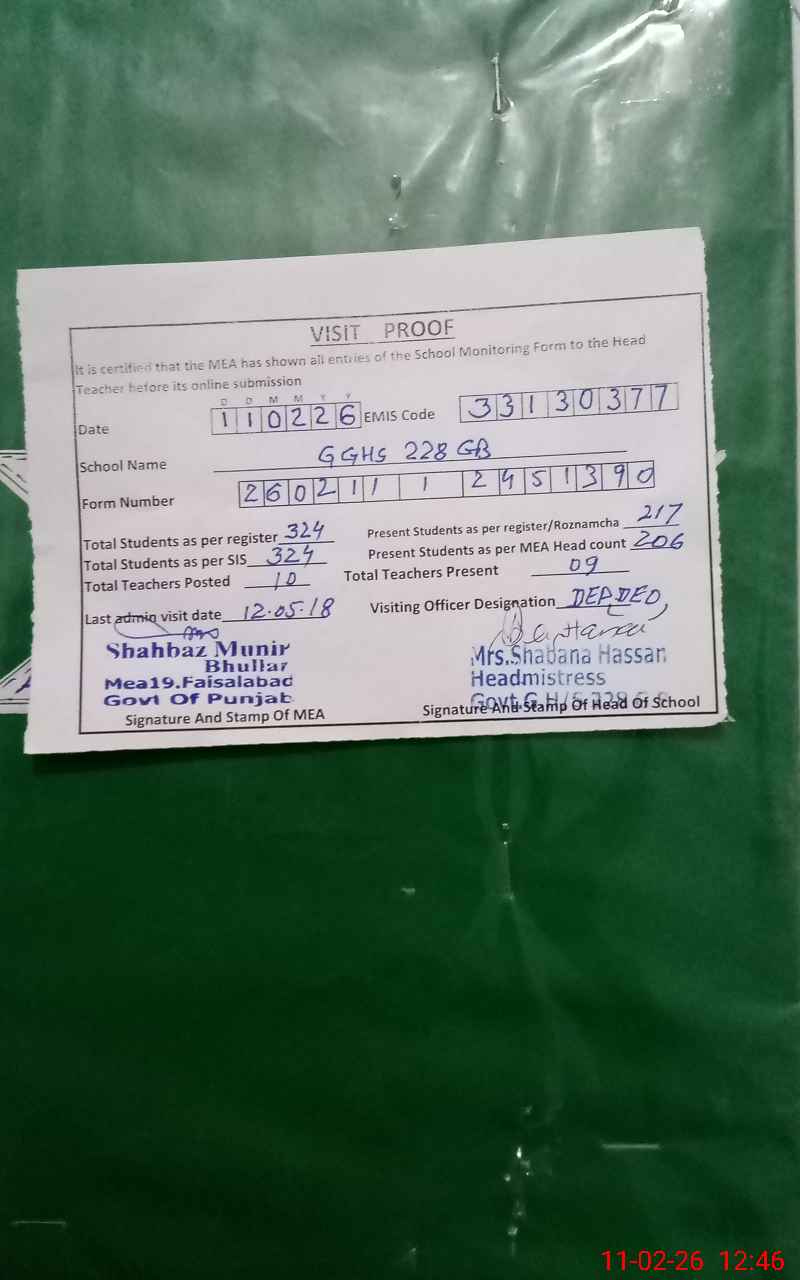 VISIT PROOF
It is certified that the MEA has shown all entries of the School Monitoring Form to the Head
Teacher before its online submission
D D M M Y Y
Date 110226 EMIS Code 33130377
School Name GGHS 228 GB
Form Number 26021112451390
Total Students as per register 324 Present Students as per register/Roznamcha 217
Total Students as per SIS 324 Present Students as per MEA Head count 206
Total Teachers Posted 10 Total Teachers Present 09
Last admin visit date 12.05.18 Visiting Officer Designation DEP.DEO
Shahbaz Munir
Bhullar
Mea19.Faisalabad
Govt Of Punjab
Signature And Stamp Of MEA
Mrs.Shabana Hassan
Headmistress
Govt.G.H/S
Signature And Stamp Of Head Of School
11-02-26 12:46